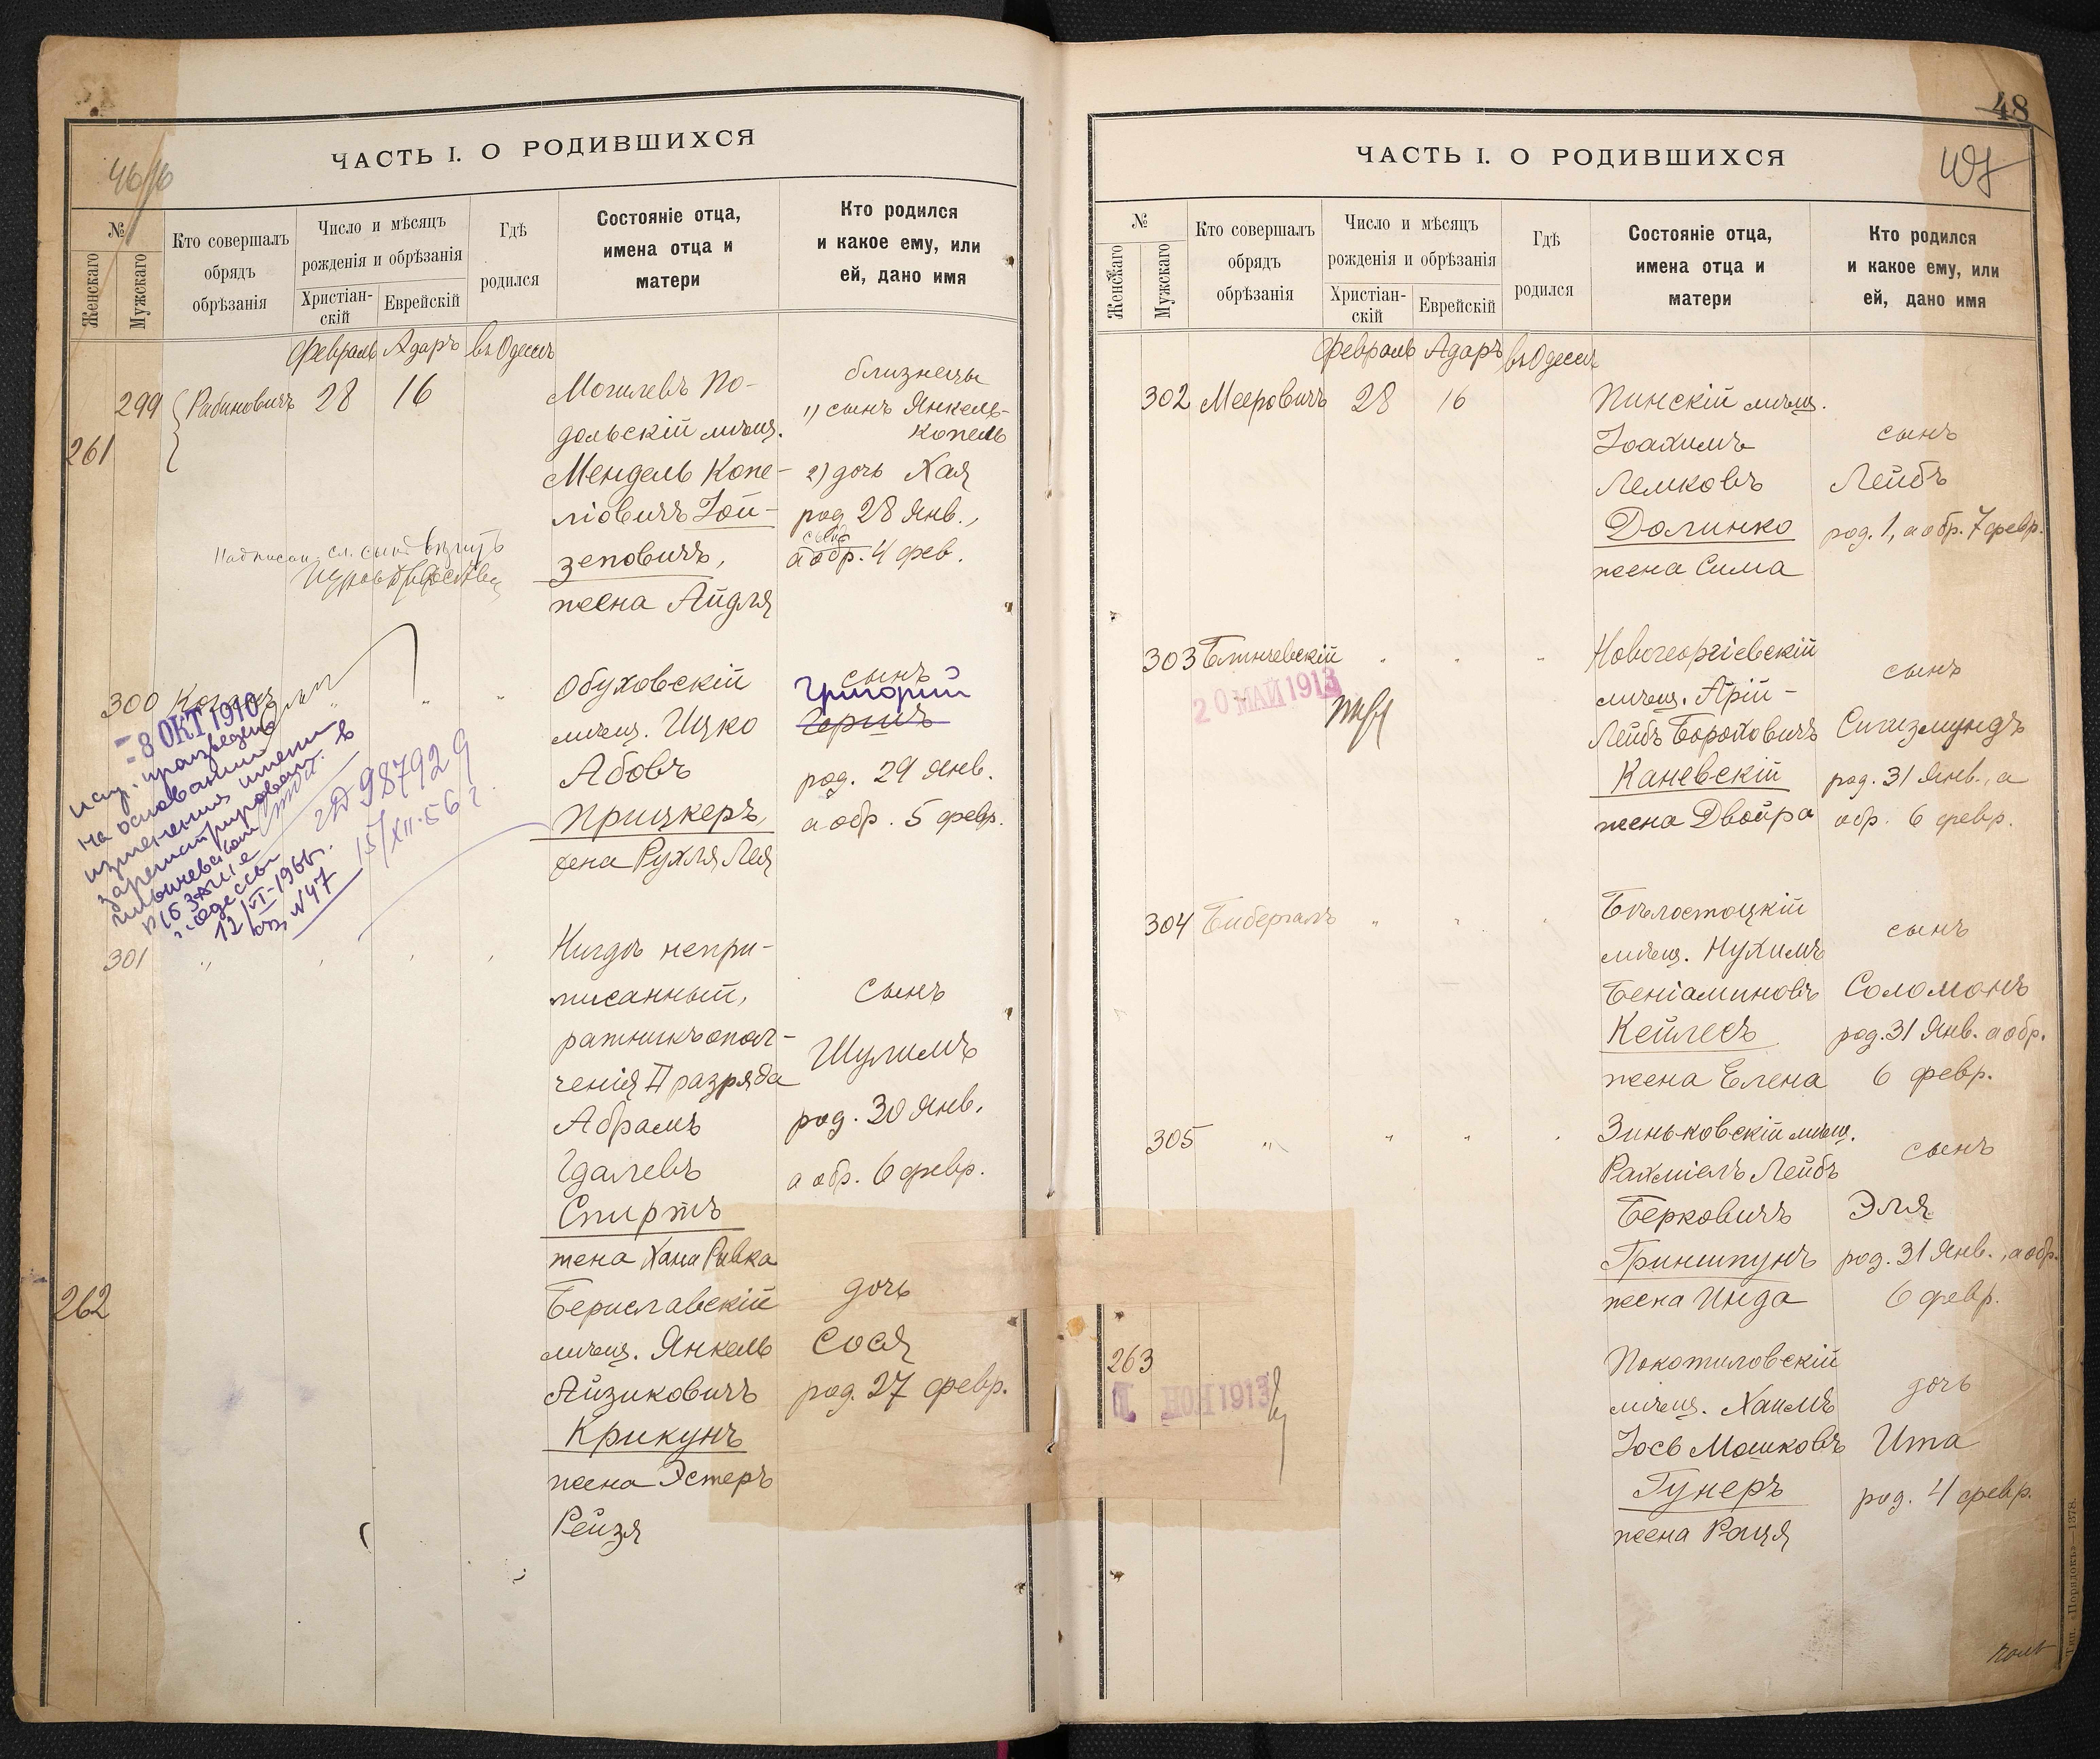 ЧАСТЬ I. О РОДИВШИХСЯ
№
Женскаго
Мужскаго
Кто совершалъ
обрядъ
обрѣзанія
Число и мѣсяцъ
рожденія и обрѣзанія
Христіан-
скій
Еврейскій
Гдѣ
родился
Состояніе отца,
имена отца и
матери
Кто родился
и какое ему, или
ей, дано имя
Февраль Адаръ въ Одессѣ
299 Рабиновичъ 28 16
261
Могилевъ По-
дольскій мѣщ.
Мендель Копе-
ліовичъ Іой-
зеповичъ,
жена Айдля
близнецы
1) сынъ Янкель-
Копель
2) дочь Хая
род. 28 Янв.,
сынъ
а обр. 4 фев.
300 Коганъ
- 8 ОКТ 1910
Обуховскій
мѣщ. Ицко
Абовъ
Прицкеръ,
жена Рухля Лея
сынъ
Григорий
Гершъ
род. 29 Янв.
а обр. 5 февр.
на основании
изменения имени
г. Одессы
12/VI-1966г.
№47
987929
15/XII-56г
301
Нигдѣ непри-
писанный,
ратникъ опол-
ченія II разряда
Абрамъ
Гдалевъ
Спиртъ
жена Хана Ривка
сынъ
Шулимъ
род. 30 Янв.
а обр. 6 февр.
262
Бериславскій
мѣщ. Янкель
Айзиковичъ
Крикунъ
жена Эстеръ
Рейзя
дочь
Сося
род. 27 февр.
48
ЧАСТЬ I. О РОДИВШИХСЯ
№
Женскаго
Мужскаго
Кто совершалъ
обрядъ
обрѣзанія
Число и мѣсяцъ
рожденія и обрѣзанія
Христіан-
скій
Еврейскій
Гдѣ
родился
Состояніе отца,
имена отца и
матери
Кто родился
и какое ему, или
ей, дано имя
Февраль Адаръ въ Одессѣ
302 Мееровичъ 28 16
Пинскій мѣщ.
Іоахимъ
Лемковъ
Долинко
жена Сима
сынъ
Лейбъ
род. 1, а обр. 7 февр.
303
20 МАЙ 1913
Новогеоргіевскій
мѣщ. Арій-
Лейбъ Бороховичъ
Каневскій
жена Двойра
сынъ
Сигизмундъ
род. 31 Янв., а
обр. 6 февр.
304
Бѣлостоцкій
мѣщ. Нухимъ
Беніаминовъ
Кейлесъ
жена Елена
сынъ
Соломонъ
род. 31 Янв. а обр.
6 февр.
305 " " "
Зиньковскій мѣщ.
Рахміель Лейбъ
Берковичъ
Гриншпунъ
жена Инда
сынъ
Эля
род. 31 Янв., а обр.
6 февр.
263
1913
Покотиловскій
мѣщ. Хаимъ
Іось Мошковъ
Гунеръ
жена Рація
дочь
Ита
род. 4 февр.
Тип. «Порядокъ»—1378.